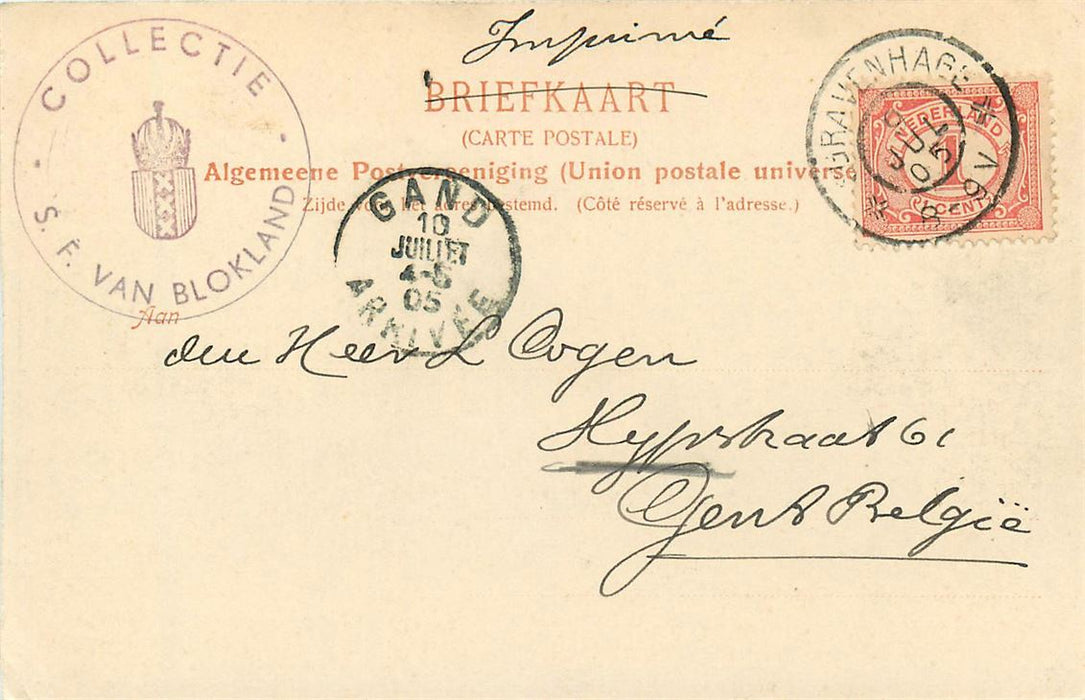 COLLECTIE
S. F. VAN BLOKLAND
Imprimé
BRIEFKAART
(CARTE POSTALE)
Algemeene Postvereeniging (Union postale universe
Zijde voor het adres bestemd. (Côté réservé à l'adresse.)
'S GRAVENHAGE
9 JUL 05
8-9 V
NEDERLAND
1
CENT
GAND
10
JUILLET
4-5
05
ARRIVÉE
Aan
den Heer L Cogen
Hypstraat 61
Gent België